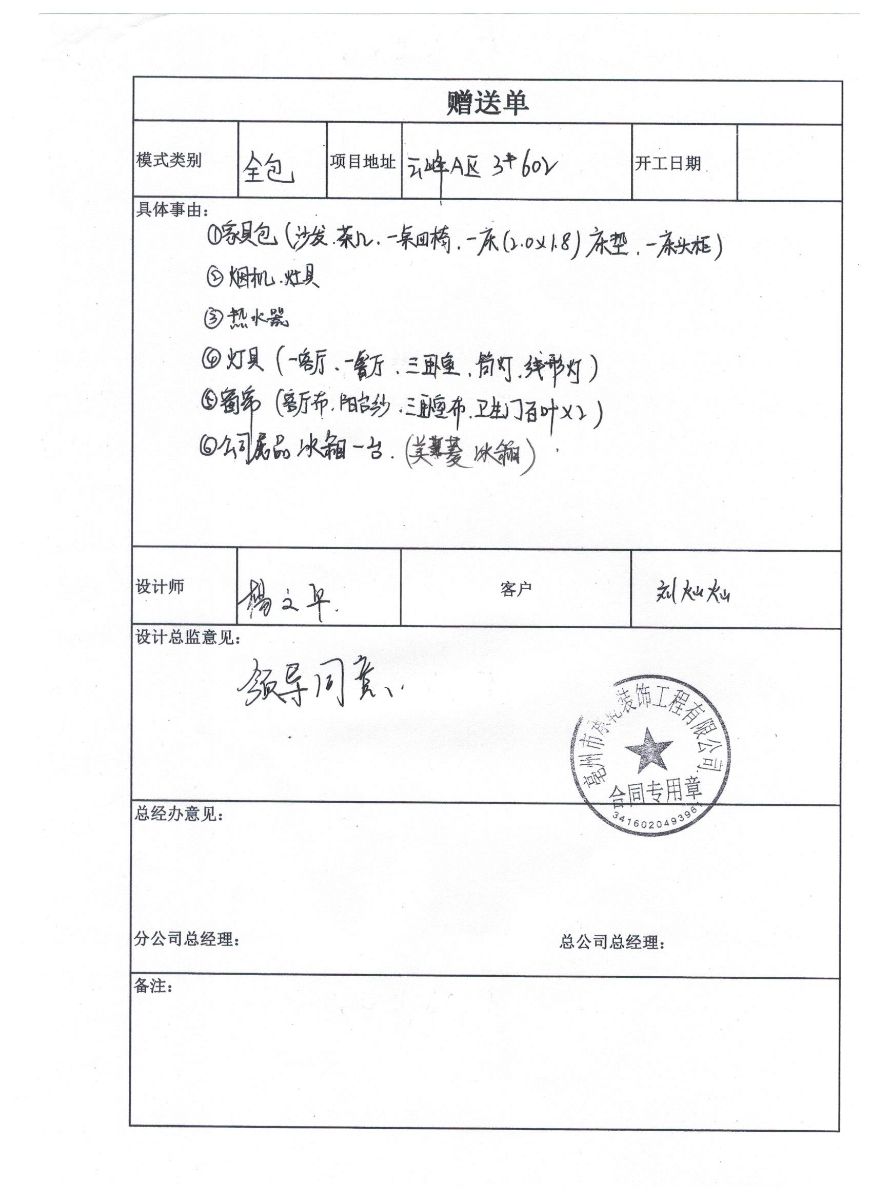 赠送单
模式类别 全包 项目地址 云峰A区 3#602 开工日期
具体事由:
①家具包(沙发.茶几.一桌四椅.一床(2.0×1.8)床垫.一床头柜)
②烟机.灶具
③热水器
④灯具(一客厅、一餐厅.三卧室.筒灯.线形灯)
⑤窗帘(客厅布.阳台纱.三卧室布.卫生门百叶×2)
⑥公司展品冰箱一台.(美菱冰箱)
设计师 杨文早. 客户 刘灿灿
设计总监意见:
领导同意
亳州市 装饰工程有限公司
合同专用章
3416020493961
总经办意见:
分公司总经理: 总公司总经理:
备注: